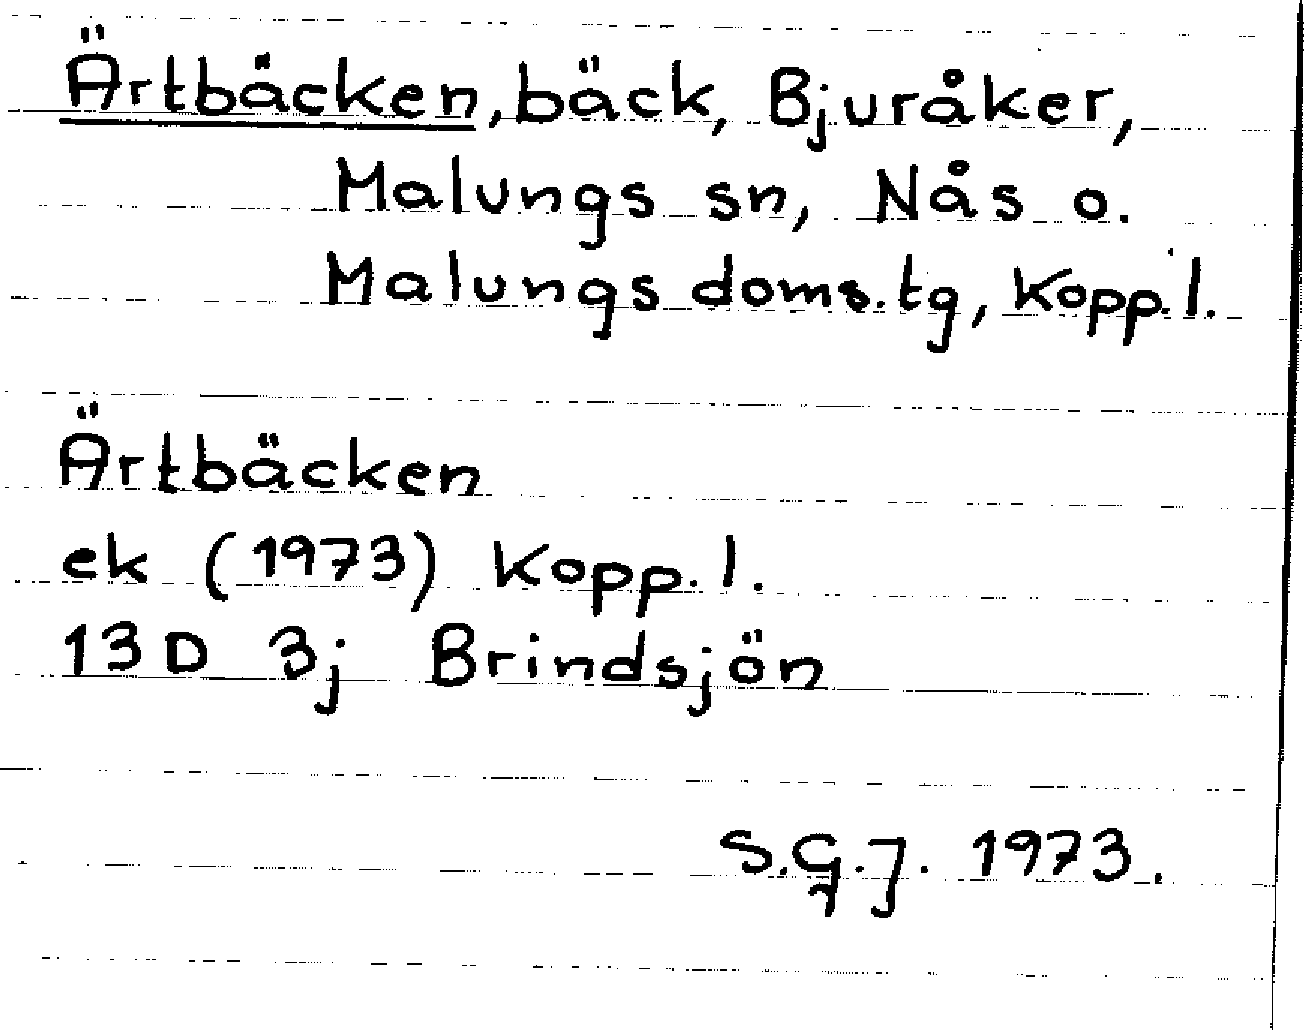 Ärtbäcken, bäck, Bjuråker,
Malungs sn, Nås o.
Malungs doms.tg, Kopp.l.
Ärtbäcken
ek (1973) Kopp.l.
13D 3j Brindsjön
S.G.J. 1973.